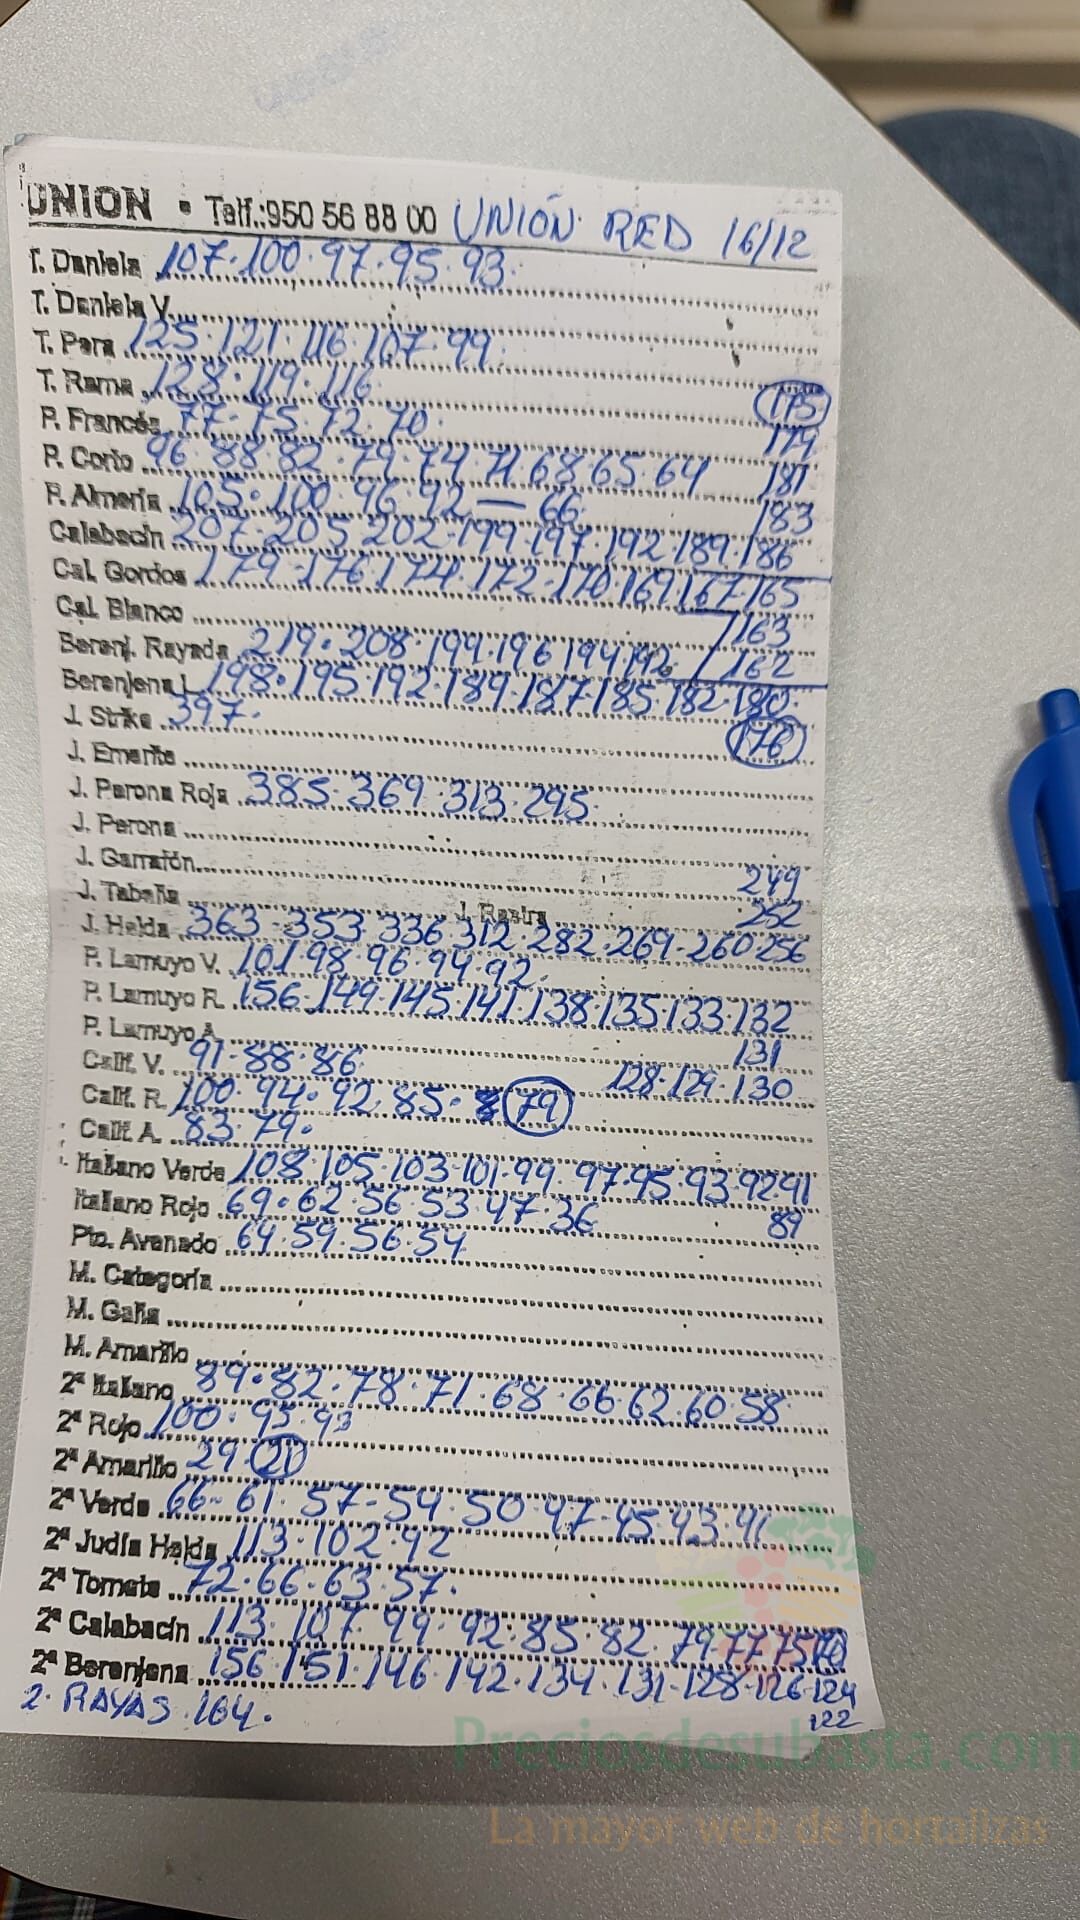 UNION • Telf.:950 56 88 00 UNIÓN RED 16/12
T. Daniela 107·100·97·95·93·
T. Daniela V.
T. Pera 125·121·116·107·99·
T. Rama 128·119·116 (175)
P. Francés 77·75·72·70· 179
P. Corto 96·88·82·79·74·71·68·65·64 181
P. Almería 105·100·96·92—66· 183
Calabacín 207·205·202·199·197·192·189·186
Cal. Gordos 179·176·174·172·170·169·167·165
Cal. Blanco 163
Berenj. Rayada 219·208·199·196·194·192· 162
Berenjena L. 198·195·192·189·187·185·182·180·
J. Strike 397· (178)
J. Emerite
J. Perona Roja 385·369·313·295·
J. Perona
J. Garrafón 249
J. Tabeña J. Rastra 252
J. Helda 363·353·336·312·282·269·260·256
P. Lamuyo V. 101·98·96·94·92·
P. Lamuyo R. 156·149·145·141·138·135·133·132
P. Lamuyo A. 131
Calif. V. 91·88·86 128·129·130
Calif. R. 100·94·92·85·(79)
Calif. A. 83·79·
Italiano Verde 108·105·103·101·99·97·95·93·92·91
Italiano Rojo 69·62·56·53·47·36 89
Pto. Avenado 64·59·56·54
M. Categoría
M. Gaña
M. Amarillo
2ª Italiano 89·82·78·71·68·66·62·60·58
2ª Rojo 100·95·93
2ª Amarillo 29·(21)
2ª Verde 66·61·57·54·50·47·45·43·41
2ª Judía Helda 113·102·92
2ª Tomate 72·66·63·57·
2ª Calabacín 113·107·99·92·85·82·79·77·75(70)
2ª Berenjena 156·151·146·142·134·131·128·126·124
2· RAYAS·164· 122
Preciosdesubasta.com
La mayor web de hortalizas